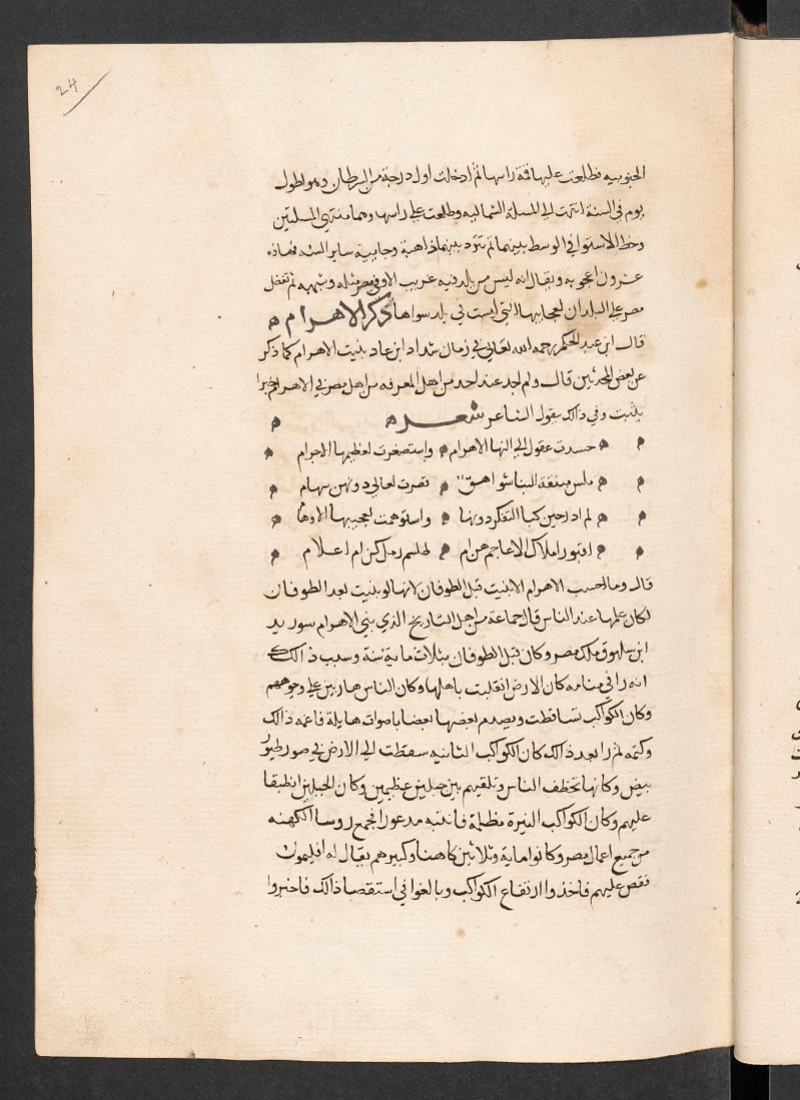 24
الجنوبيه فطلعت عليها قمة راسها ثم اذا دخلت اول درجة من السرطان وهو اطول
يوم في السنة انتهت الي المسلة الشماليه وطلعت علي راسها وهما منتهي المسلتين
وخط الاستوا في الوسط بينهما ثم تتردد بينهما ذاهبة وجايية ساير السنه فهاذه
عشرون اعجوبه ويقال انه ليس من بلد فيه غريب الا وفي مصر مثله وشبهه ثم تفضل
مصر علي البلدان لعجايبها التي ليست في بلد سواها ذكر الاهرام
قال ابن عبد الحكم رحمه الله تعالي في زمان شداد ابن عاد بنيت الاهرام كما ذكر
عن بعض المحدثين قال ولم اجد عند احد من اهل المعرفه من اهل مصر في الاهرام خبرا
يثبت وفي ذالك يقول الشاعر شعر
حسرت عقول الي النها الاهرام واستصغرت لعظيمها الاجرام
ملس منبقة البنا شواهق قصرت لعالي دونهن سهام
لم ادر حين كبا التفكر دونها واستوهمت لعجيبها الاوهام
اقبور املاك الاعاجم هن ام طلسم رمل كن ام اعلام
قال وما احسب الاهرام الا بنيت قبل الطوفان لانها لو بنيت بعد الطوفان
لكان علمها عند الناس قال جماعة من اهل التاريخ الذي بني الاهرام سوريد
ابن سلهوق ملك مصر وكان قبل الطوفان بثلاث ماية سنة وسبب ذالك
انه را في منامه كان الارض انقلبت باهلها وكان الناس هاربين علي وجوههم
وكان الكواكب تساقطت ويصدم بعضها بعضا باصوات هايلة فاغمه ذالك
وكتمه ثم را بعد ذالك كان الكواكب الثانيه سقطت الي الارض في صور طيور
بيض وكانها تخطف الناس وتلقيهم بين جبلين عظيمين وكان الجبلين انطبقا
عليهم وكان الكواكب النيرة مظلمة فانتبه مدعورا فجمع روسا الكهنه
من جميع اعمال مصر وكانوا ماية وثلاثين كاهنا وكبيرهم يقال له افليمون
فقص عليهم فاخذوا ارتفاع الكواكب وبالغوا في استقصا ذالك فاخبروا